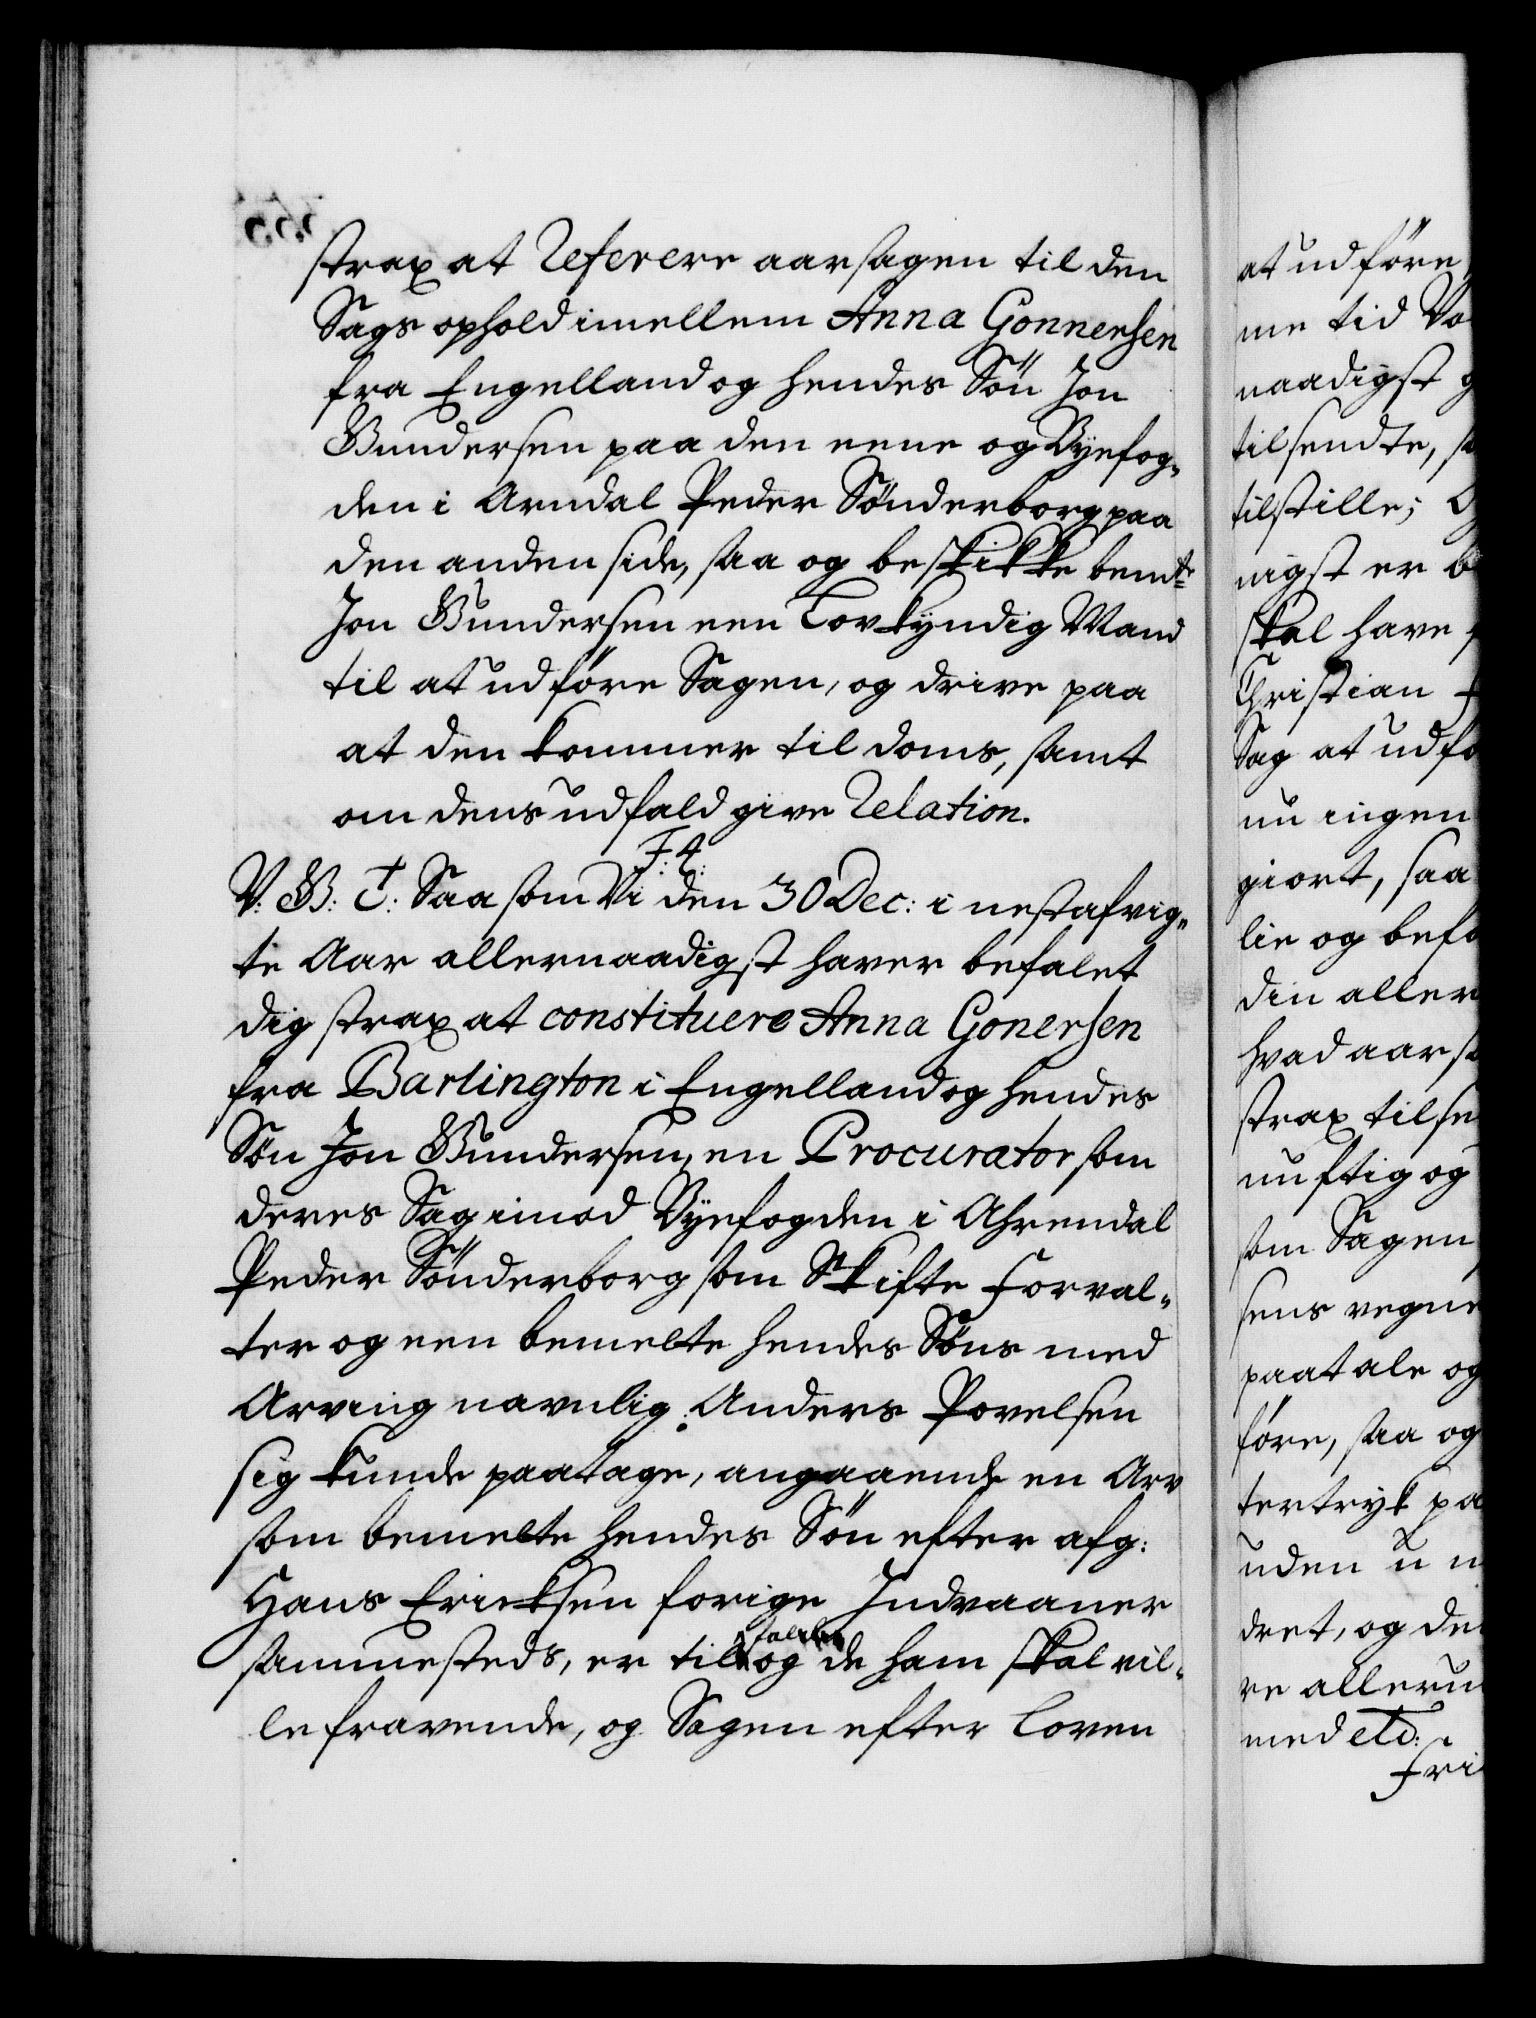 strax at Referere aarsagen til den
Sags ophold imellem Anna Gonnersen
fra Engelland og hendes Sön Jon
Gundersen paa den eene og Byefog„
den i Arndal Peder Sönderborg paa
den anden side, saa og beskikke bemte
Jon Gundersen een Lovkyndig Mand
til at udföre Sagen, og drive paa
at den kommer til doms, samt
om dens udfald give Relation.
F. 4.
V. G. T. Saasom Vi den 30 Dec: i nestafvig„
te Aar allernaadigst haver befalet
dig strax at constituere Anna Gonersen
fra Barlington i Engelland og hendes
Sön Jon Gundersen, en Procurator som
deres Sag imod Byefogden i Ahrendal
Peder Sönderborg som Skifte Forval„
ter og een bemelte hendes Söns med
Arving navnlig: Anders Povelsen
sig kunde paatage, angaaende en Arv
som bemelte hendes Sön efter afg:
Hans Ericksen forige Indvaaner
sammesteds, er til falden og de ham skal vil„
le fravende, og Sagen efter Loven
at udföre
me tid
naadigst
tilsendte,
tilstille;
nigst er
skal have
Christian
Sag at
nu ingen
giort, saa
lie og
din
hvad
strax
nuftig og
som Sagen
sens vegne
paatale og
före, saa og
tertryk
uden
dret, og
re
med etc: